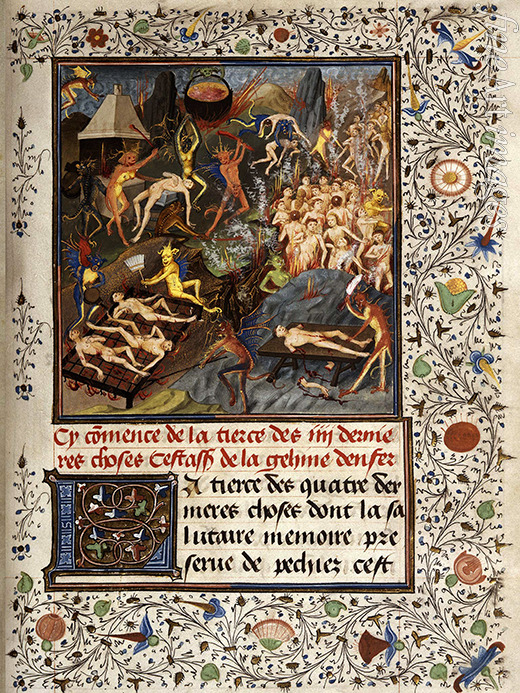 Cy cõmence de la tierce des iiij dernie
res choses Cestass̃ de la gehine denfer
La tierce des quatre der
nieres choses dont la sa
lutaire memoire pre
serue de pechier cest